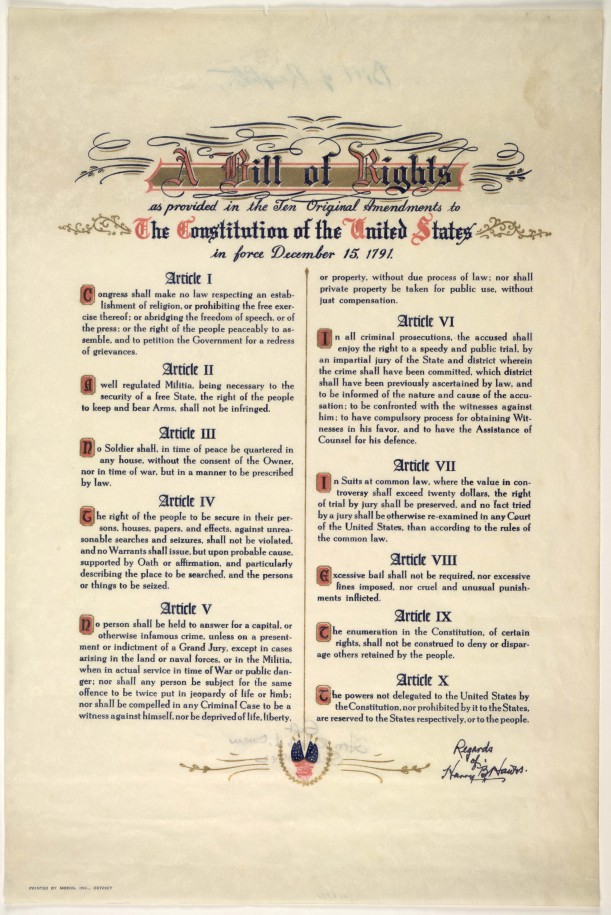 A Bill of Rights
as provided in the Ten Original Amendments to
The Constitution of the United States
in force December 15, 1791.
Article I
Congress shall make no law respecting an estab-
lishment of religion, or prohibiting the free exer-
cise thereof; or abridging the freedom of speech, or of
the press; or the right of the people peaceably to as-
semble, and to petition the Government for a redress
of grievances.
Article II
A well regulated Militia, being necessary to the
security of a free State, the right of the people
to keep and bear Arms, shall not be infringed.
Article III
No Soldier shall, in time of peace be quartered in
any house, without the consent of the Owner,
nor in time of war, but in a manner to be prescribed
by law.
Article IV
The right of the people to be secure in their per-
sons, houses, papers, and effects, against unrea-
sonable searches and seizures, shall not be violated,
and no Warrants shall issue, but upon probable cause,
supported by Oath or affirmation, and particularly
describing the place to be searched, and the persons
or things to be seized.
Article V
No person shall be held to answer for a capital, or
otherwise infamous crime, unless on a present-
ment or indictment of a Grand Jury, except in cases
arising in the land or naval forces, or in the Militia,
when in actual service in time of War or public dan-
ger; nor shall any person be subject for the same
offence to be twice put in jeopardy of life or limb;
nor shall be compelled in any Criminal Case to be a
witness against himself, nor be deprived of life, liberty,
or property, without due process of law; nor shall
private property be taken for public use, without
just compensation.
Article VI
In all criminal prosecutions, the accused shall
enjoy the right to a speedy and public trial, by
an impartial jury of the State and district wherein
the crime shall have been committed, which district
shall have been previously ascertained by law, and
to be informed of the nature and cause of the accu-
sation; to be confronted with the witnesses against
him; to have compulsory process for obtaining Wit-
nesses in his favor, and to have the Assistance of
Counsel for his defence.
Article VII
In Suits at common law, where the value in con-
troversy shall exceed twenty dollars, the right
of trial by jury shall be preserved, and no fact tried
by a jury shall be otherwise re-examined in any Court
of the United States, than according to the rules of
the common law.
Article VIII
Excessive bail shall not be required, nor excessive
fines imposed, nor cruel and unusual punish-
ments inflicted.
Article IX
The enumeration in the Constitution, of certain
rights, shall not be construed to deny or dispar-
age others retained by the people.
Article X
The powers not delegated to the United States by
the Constitution, nor prohibited by it to the States,
are reserved to the States respectively, or to the people.
Regards
of
Harry B. Hawes.
PRINTED BY MODEL INC., DETROIT